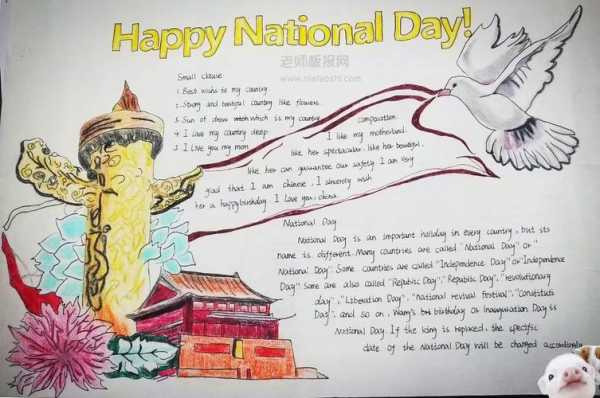 Happy National Day!
老师板报网
Small clause
1. Best wishes to my country
2. Strong and beautiful country like flowers
3. Sun of dress which is my country
4. I love my country deep
5 I Love you my mom
composition
I like my motherland.
like her spectacular. like her beautiful.
like her can guarantee our safety. I am very
glad that I am chinese. I sincerely wish
her a happy birthday. I Love you. china
National Day
National Day is an important holiday in every country, but its
name is different. Many countries are called "National Day" or "
National Day". Some countries are called "Independence Day" or "Independence
Day" Some are also called "Republic Day", "Republic Day", "revolutionary
day", "Liberation Day", "National revival festival", "Constituti
Day", and so on, Wang's birthday or Inauguration Day is
National Day. If the king is replaced, the specific
date of the National Day will be changed accordingly